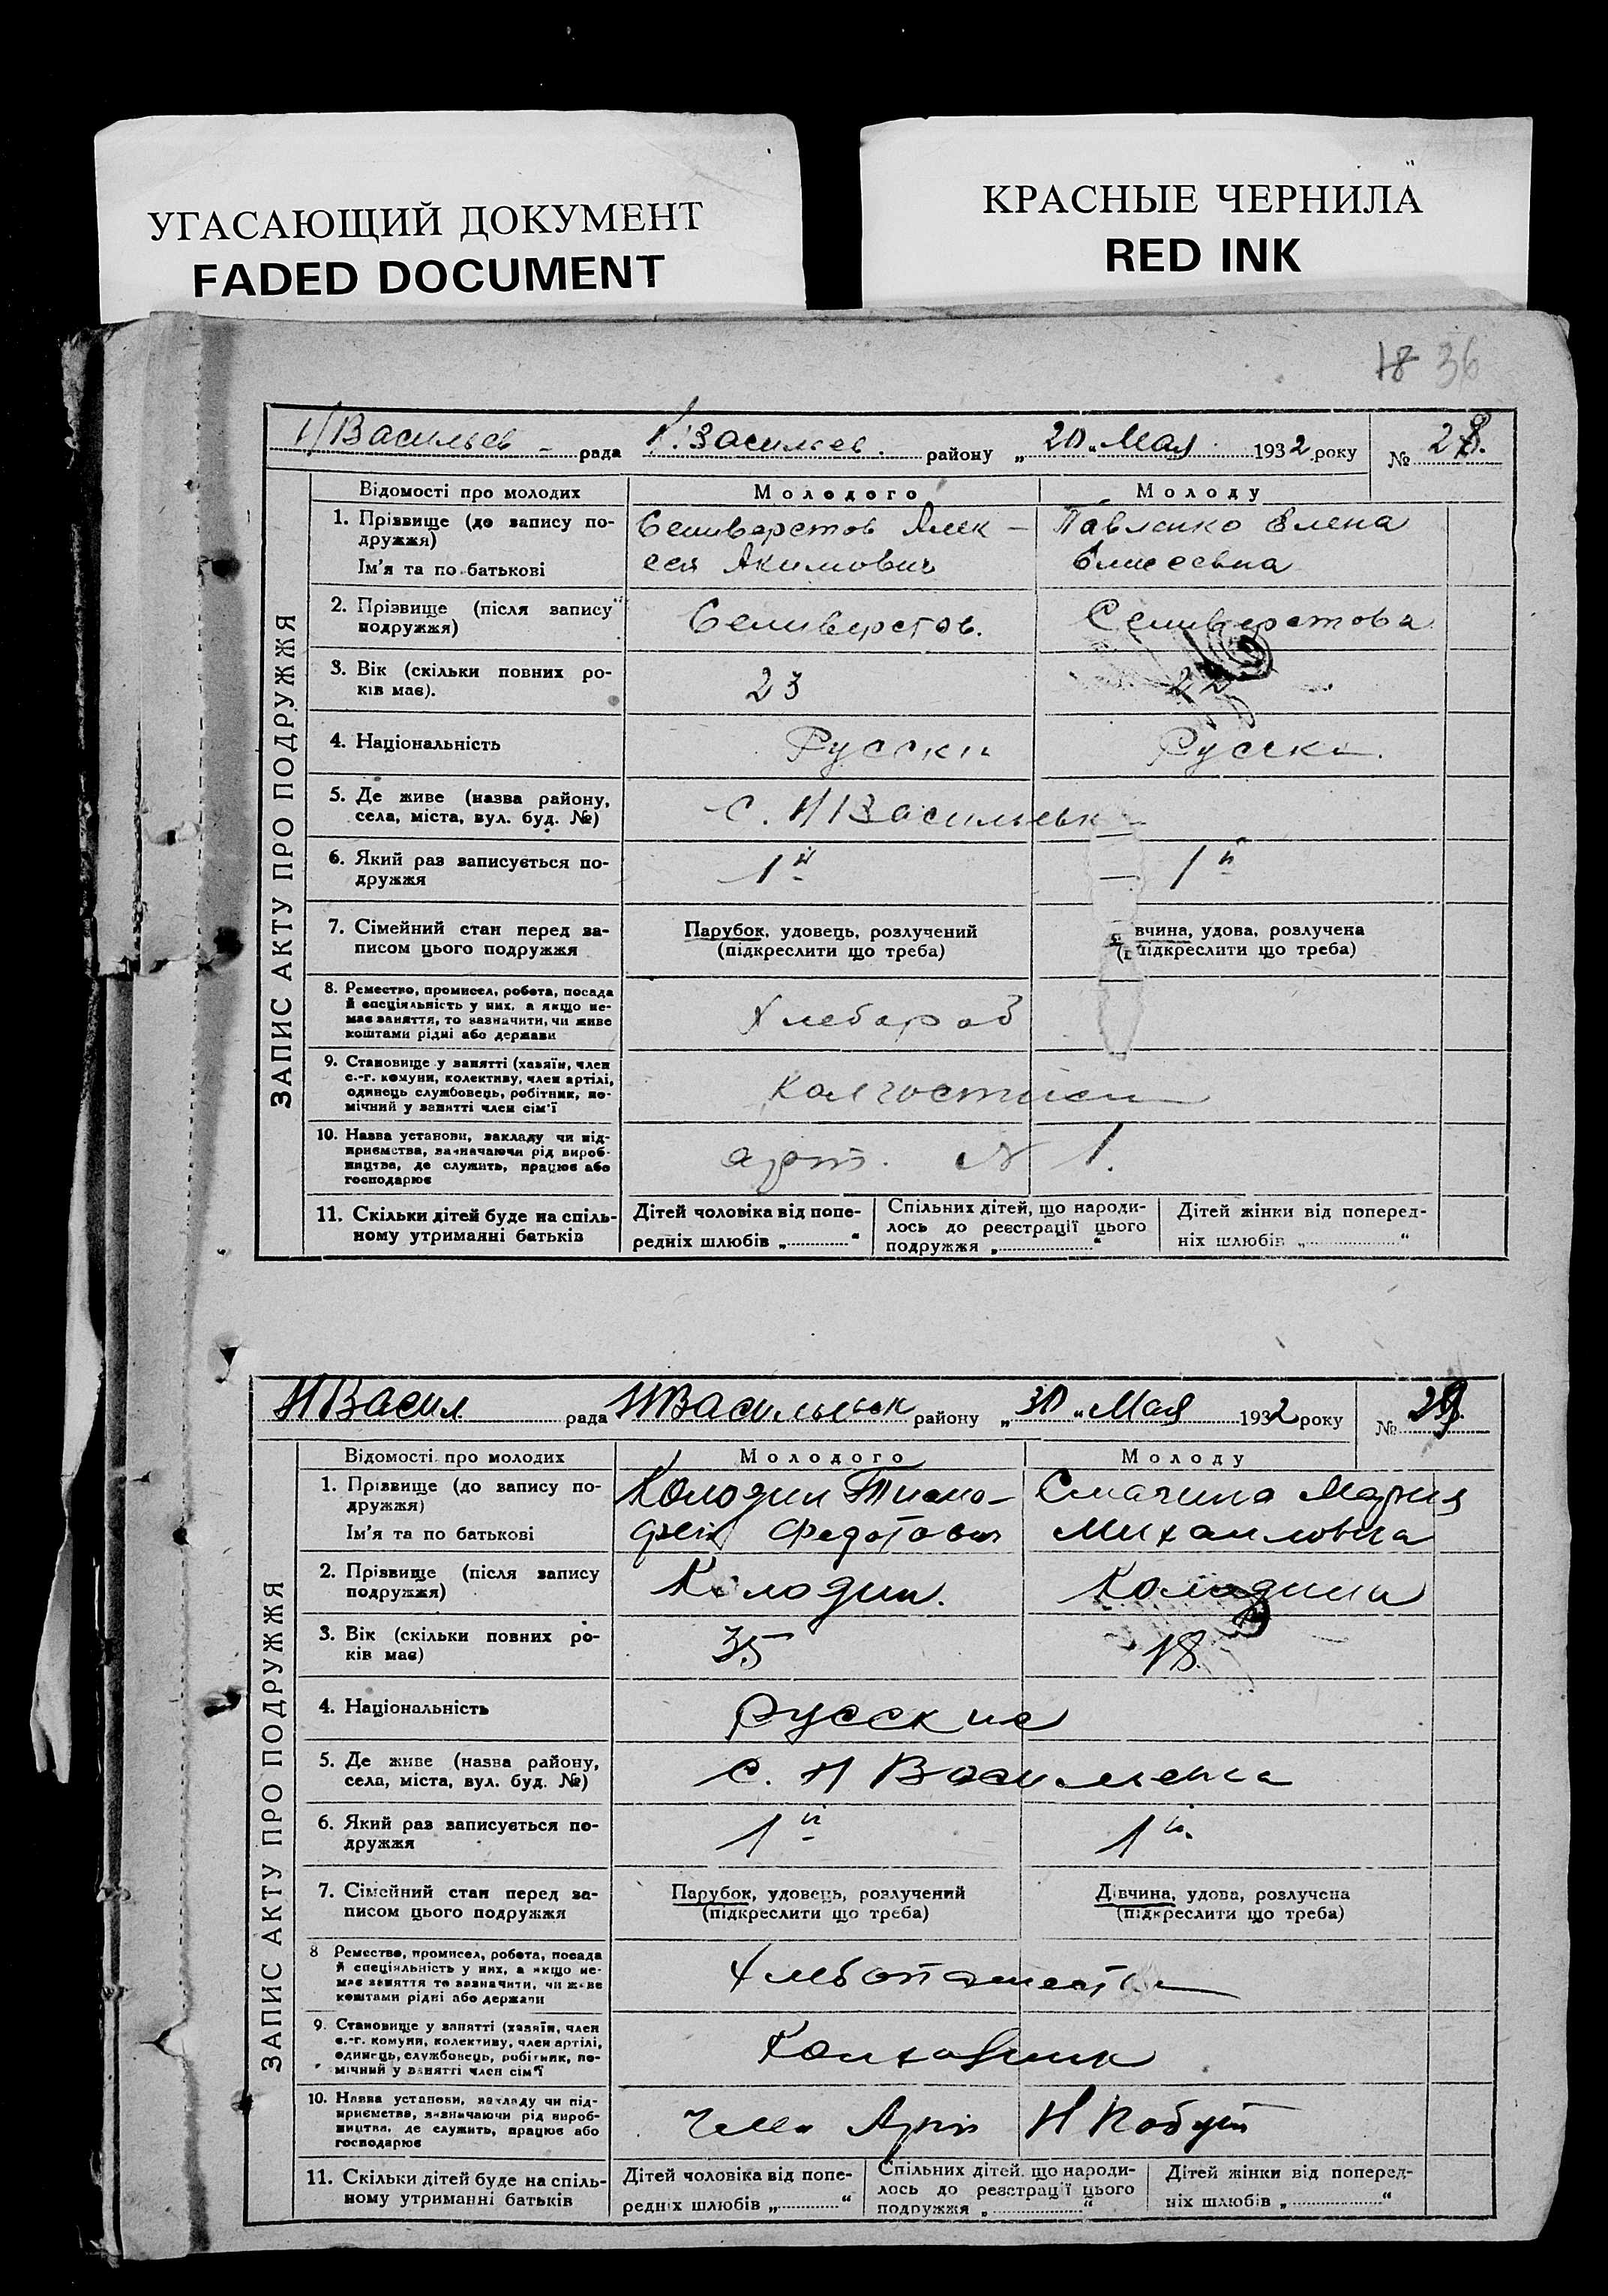 УГАСАЮЩИЙ ДОКУМЕНТ
FADED DOCUMENT
КРАСНЫЕ ЧЕРНИЛА
RED INK
18 36
ЗАПИС АКТУ ПРО ПОДРУЖЖЯ
Н/Васильев - рада Н.Васильев. району „20„ Мая 1932 року № 28.
Відомості про молодих Молодого Молоду
1. Прізвище (до запису по- Селиверстов Алек- Павленко Елена
дружжя)
Ім'я та по батькові сея Акимович Елисеевна
2. Прізвище (після запису Селиверстов. Селиверстова
подружжя)
3. Вік (скільки повних ро- 23
ків має).
4. Національність Русски Русска.
5. Де живе (назва району, с. Н/Васильевк
села, міста, вул. буд. №)
6. Який раз записується по- 1й 1й
дружжя
7. Сімейний стан перед за- Парубок, удовець, розлучений вчина, удова, розлучена
писом цього подружжя (підкреслити що треба) (підкреслити що треба)
8. Ремество, промисел, робота, посада Хлебароб
й спеціяльність у них, а якщо не-
має заняття, то зазначити, чи живе
коштами рідні або держави
9. Становище у занятті (хазяїн, член
с.-г. комуни, колективу, член артілі,
одинець службовець, робітник, по-
мічний у занятті член сім'ї
10. Назва установи, закладу чи під- арт. № 1.
приємства, зазначаючи рід вироб-
ництва, де служить, працює або
господарює
11. Скільки дітей буде на спіль- Дітей чоловіка від попе- Спільних дітей, що народи- Дітей жінки від поперед-
ному утриманні батьків редніх шлюбів „......“ лось до реєстрації цього ніх шлюбів „......“
подружжя „......“
ЗАПИС АКТУ ПРО ПОДРУЖЖЯ
НВасил рада НВасильевк району „30„ Мая 1932 року № 29.
Відомості про молодих Молодого Молоду
1. Прізвище (до запису по- Колодин Тимо- Смагина Мария
дружжя)
Ім'я та по батькові фей Федотович Михаиловна
2. Прізвище (після запису Колодин. Колодина
подружжя)
3. Вік (скільки повних ро- 35 18.
ків має)
4. Національність русские
5. Де живе (назва району, с. Н Васильевка
села, міста, вул. буд. №)
6. Який раз записується по- 1й 1й.
дружжя
7. Сімейний стан перед за- Парубок, удовець, розлучений Дівчина, удова, розлучена
писом цього подружжя (підкреслити що треба) (підкреслити що треба)
8 Ремество, промисел, робота, посада
й спеціяльність у них, а якщо не-
має заняття то зазначити, чи живе
коштами рідні або держави
9. Становище у занятті (хазяїн, член Колхозник
с.-г. комуни, колективу, член артілі,
одинець, службовець, робітник, по-
мічний у занятті член сім'ї
10. Назва установи, закладу чи під- член Арт Н Побут
приємства, зазначаючи рід вироб-
ництва, де служить, працює або
господарює
11. Скільки дітей буде на спіль- Дітей чоловіка від попе- Спільних дітей, що народи- Дітей жінки від поперед-
ному утриманні батьків редніх шлюбів „......“ лось до реєстрації цього ніх шлюбів „......“
подружжя „......“